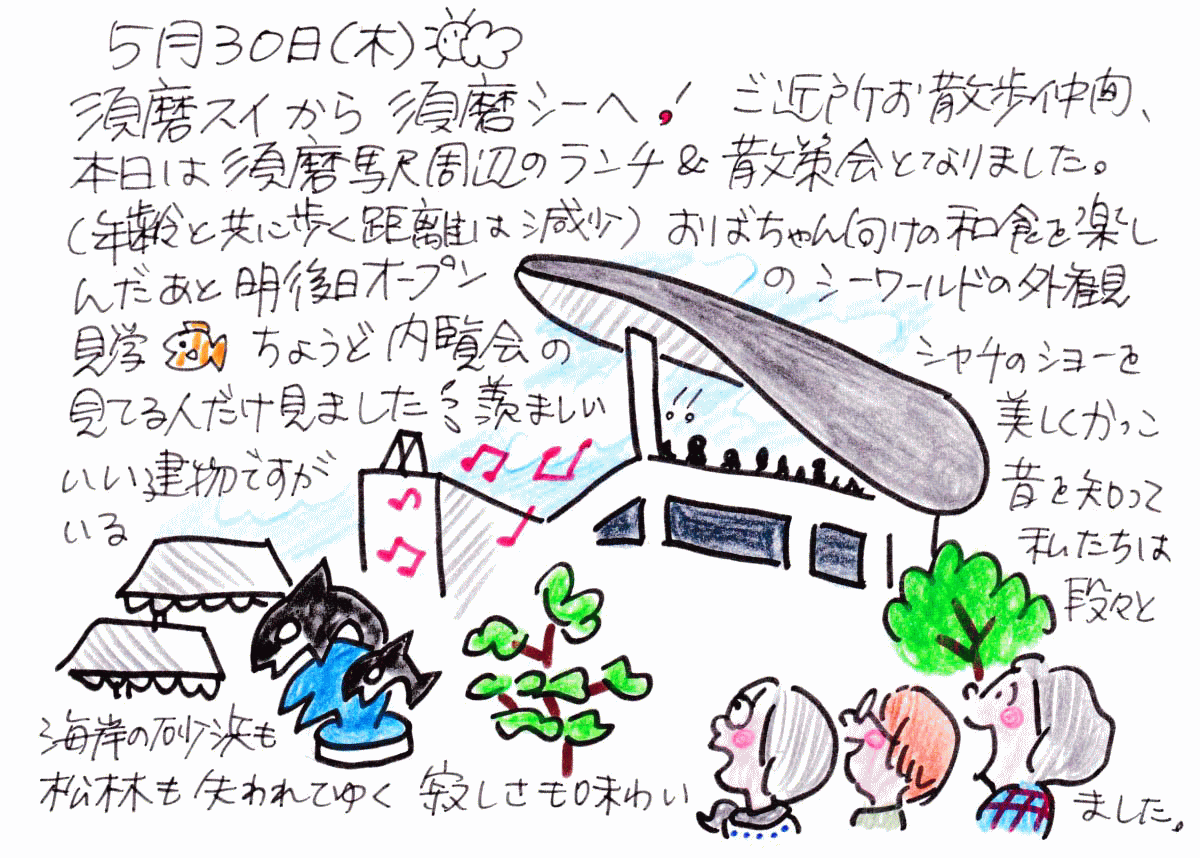 5月30日(木)
須磨スイから 須磨シーへ! ご近所お散歩仲間、
本日は須磨駅周辺のランチ&散策会となりました。
(年齢と共に歩く距離は減少) おばちゃん向けの和食を楽し
んだあと明後日オープン のシーワールドの外観
見学 ちょうど内覧会の シャチのショーを
見てる人だけ見ました 羨ましい 美しくかっこ
いい建物ですが 昔を知って
いる 私たちは
段々と
!!
海岸の砂浜も
松林も失われてゆく 寂しさも味わい ました。